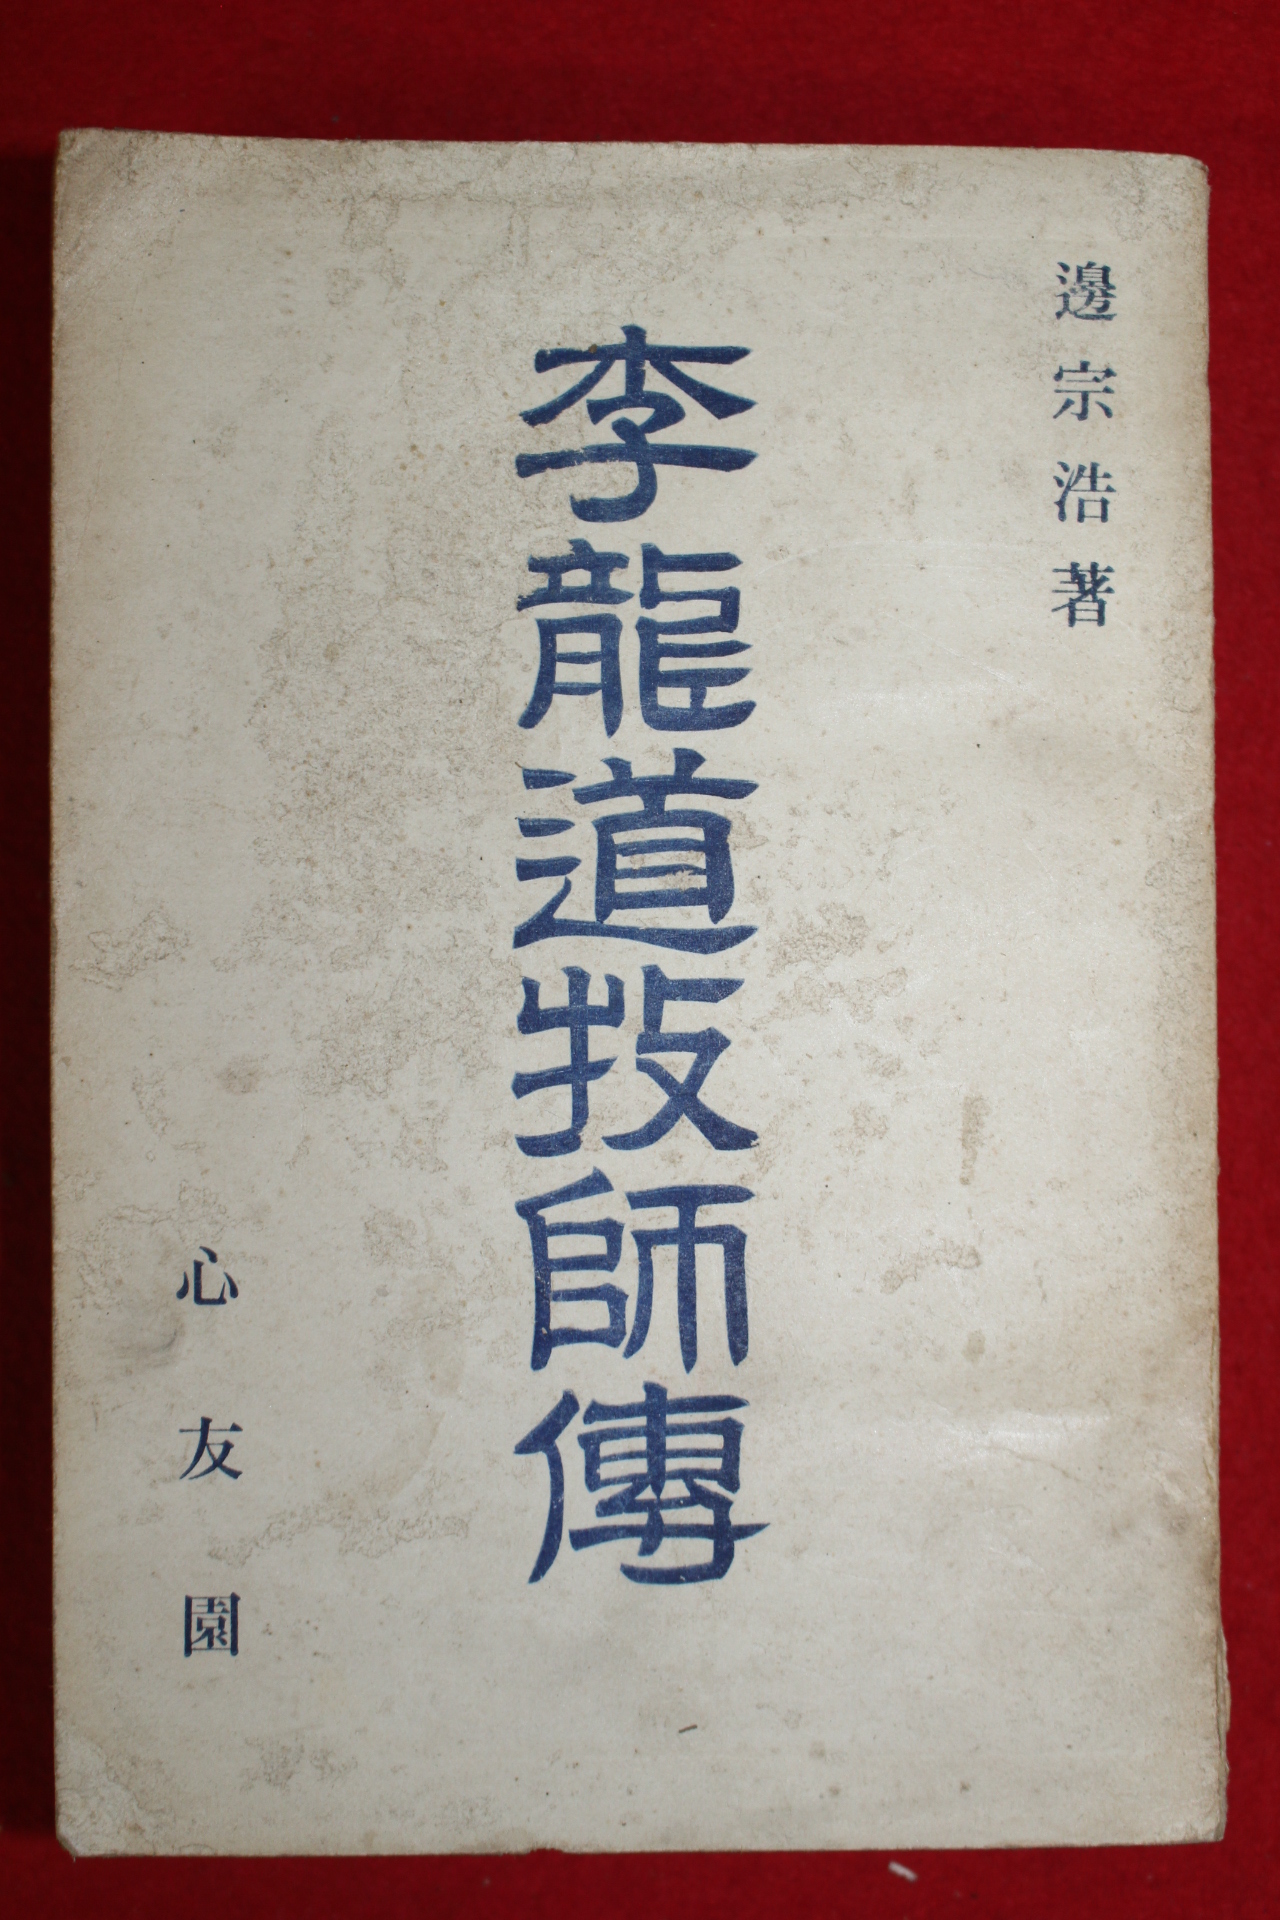 邊宗浩著
李龍道牧師傳
心友園